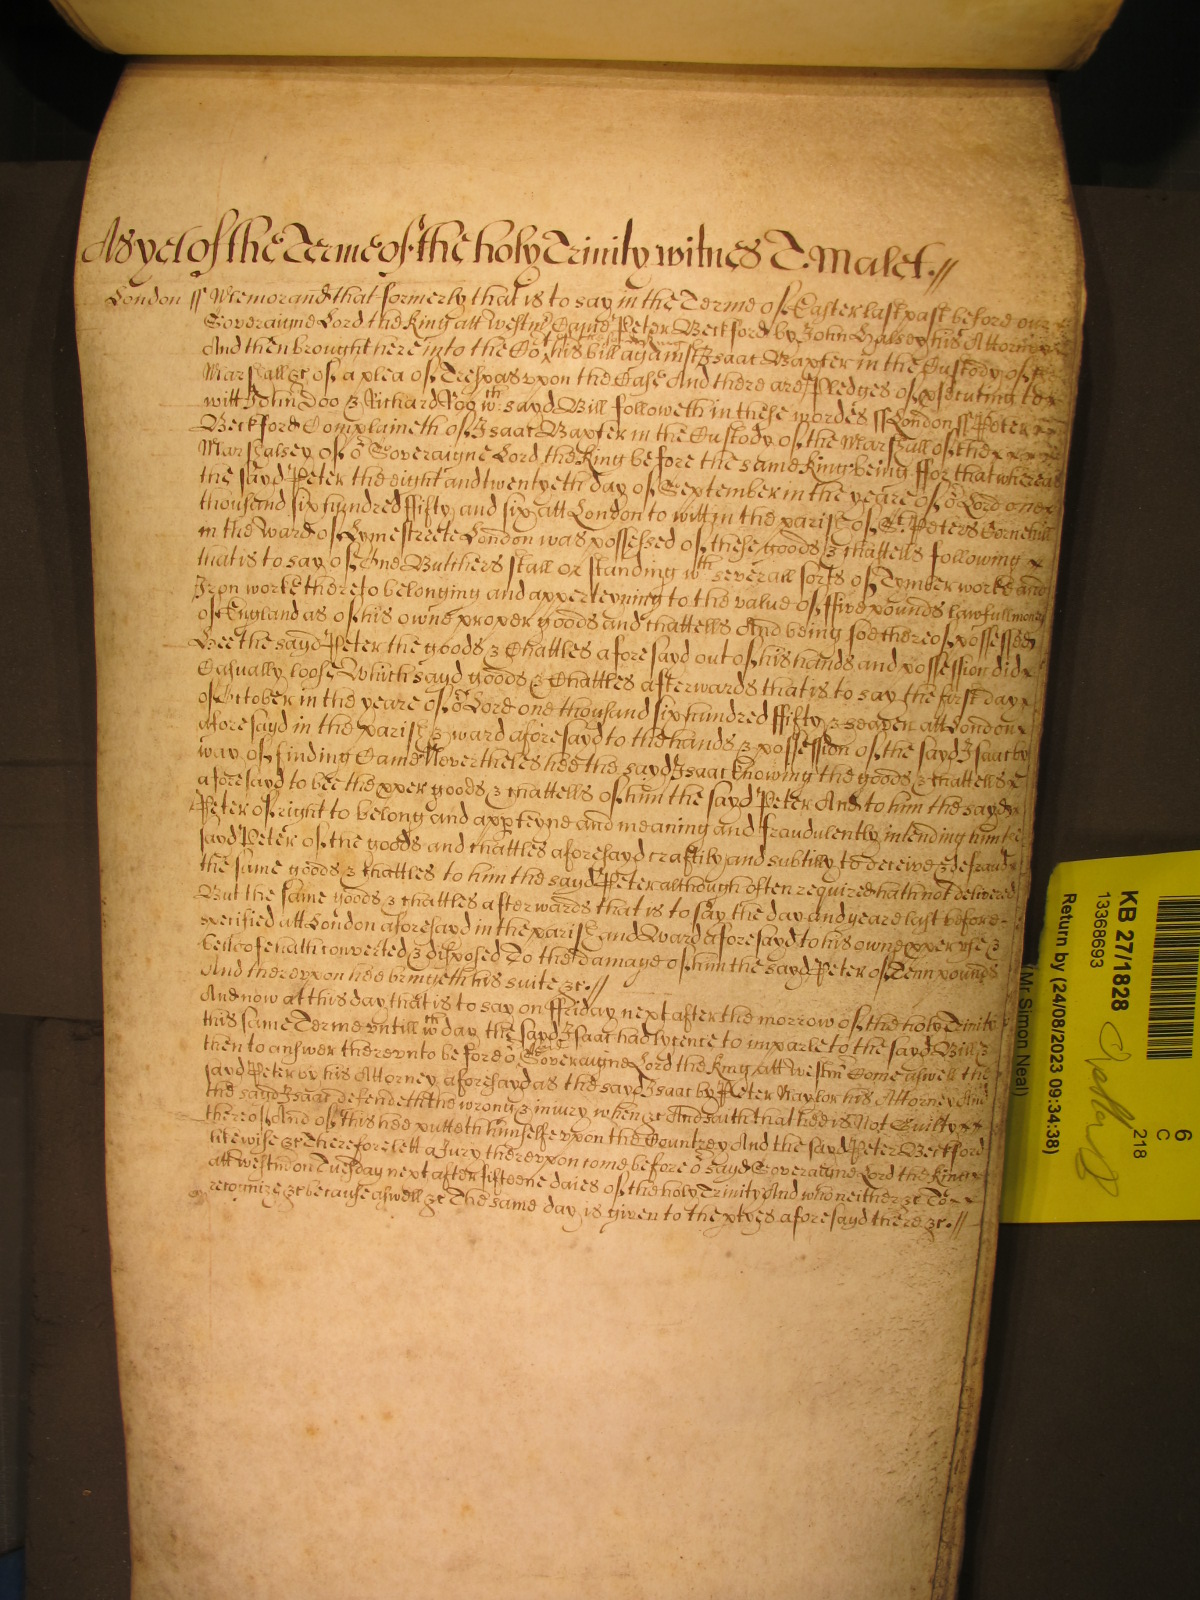 As yet of the Terme of the holy Trinity witnes T. Malet.//
London ss Memorand that formerly that is to say in the Terme of Easter last past before our
Soveraigne Lord the King att Westm Came Peter Beckford by John Halsey his Attorney
And then brought here into the Co his bill against Isaac Baxter in the Custody of the
Marshall &c of a plea of Trespas upon the Case And there are Pledges of psecuting to
witt John Doo & Richard Roo wch sayd Bill followeth in these wordes ss London ss Peter
Beckford Complaineth of Isaac Baxter in the Custody of the Marshall of the
Marshalsey of or Soveraigne Lord the King before the same King being ffor that whereas
the sayd Peter the eight and twentyeth day of September in the yeare of or Lord one
thousand six hundred ffifty and six att London to witt in the parish of St. Peters Cornehill
in the Ward of Lymestreete London was possessed of these goods & chattells following
that is to say of One Butchers stall or standing wth severall sorts of Tymber worke and
Iron worke thereto belonging and apperteyning to the value of ffive pounds lawfull money
of England as of his owne proper goods and chattells And being soe thereof possessed
Hee the sayd Peter the goods & Chattles aforesayd out of his hands and possession did
Casually loose Which sayd goods & Chattles afterwards that is to say the first day
of October in the yeare of or Lord one thousand six hundred ffifty & seaven att London
aforesayd in the parish & ward aforesayd to the hands & possession of the sayd Isaac by
way of finding Came Nevertheles hee the sayd Isaac knowing the goods & chattells
aforesayd to bee the pper goods & chattells of him the sayd Peter And to him the sayd
Peter of right to belong and apperteyne and meaning and fraudulently intending him the
sayd Peter of the goods and chattles aforesayd craftily and subtilly to deceive & defraud
the same goods & chattles to him the sayd Peter although often required hath not delivered
But the same goods & chattles afterwards that is to say the day and yeare last before
specified att London aforesayd in the parish and Ward aforesayd to his owne pper use &
behoofe hath converted & disposed To the damage of him the sayd Peter of Tenn pounds
And thereupon hee bringeth his suite &c.//
And now at this day that is to say on ffriday next after the morrow of the holy Trinity
this same Terme untill wch day the sayd Isaac had lycence to imparle to the sayd Bill &
then to answer thereunto before or Soveraigne Lord the King att Westm Come aswell the
sayd Peter by his Attorney aforesayd as the sayd Isaac by Peter Naylor his Attorney And
the sayd Isaac defendeth the wrong & injury when &c And saith that hee is Not Guilty
thereof And of this hee putteth himselfe upon the Countrey And the sayd Peter Beckford
likewise &c Therefore lett a Jury thereupon come before or sayd Soveraigne Lord the King
att Westm on Tuesday next after fifteene daies of the holy Trinity And who neither &c To
recognize &c because aswell &c The same day is given to the ptyes aforesayd there &c.//
KB 27/1828
13368693
Return by (24/08/2023 09:34:38)
(Mr Simon Neal)
6
C
218